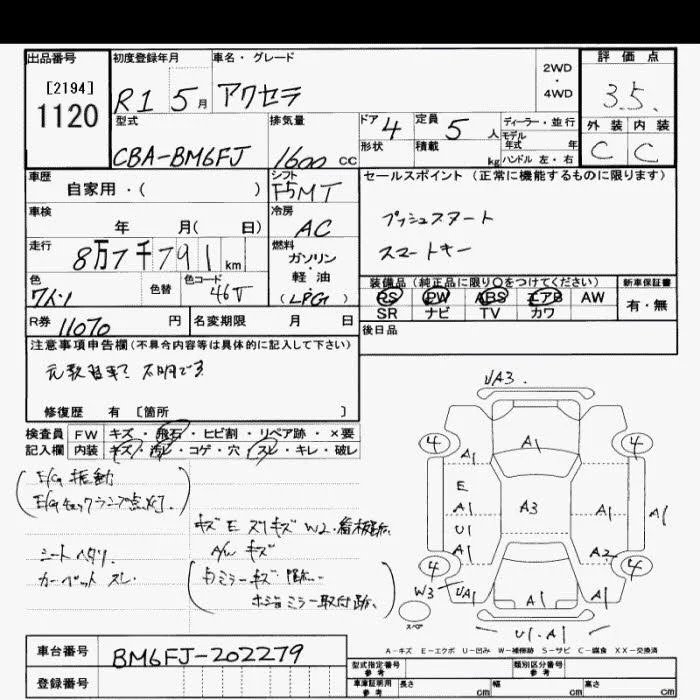 出品番号 初度登録年月 車名・グレード 2WD・4WD 評価点
[2194]
1120
R1 5月 アクセラ 3.5
型式 排気量 ドア 4 定員 5人 ディーラー・並行 外装 内装
形状 積載 kg モデル年式 年
ハンドル 左・右
CBA-BM6FJ 1600cc C C
車歴 シフト セールスポイント(正常に機能するものに限ります)
自家用・( ) F5MT
プッシュスタート
スマートキー
車検 年 月( 日) 冷房 AC
走行 8万7千791km 燃料 ガソリン・軽油 (LPG)
色 色替 色コード 46V
装備品(純正品に限り○をつけてください) 新車保証書
PS PW ABS エアB AW 有・無
SR ナビ TV カワ
R券 11070円 名変期限 月 日 後日品
注意事項申告欄(不具合内容等は具体的に記入して下さい)
元教習車? 不明です
修復歴 有 [箇所 ]
検査員 FW キズ・飛石・ヒビ割・リペア跡・×要
記入欄 内装 キズ・汚レ・コゲ・穴・スレ・キレ・破レ
(E/G 振動
E/Gチェックランプ点灯.)
シートヘタリ.
カーペット スレ.
キズ E ズリキズ W2・看板跡.
A/W キズ
ホジョミラー取付跡.)
UA3.
4 A1 4
A1
E
A1 A3 A1 A1
U1
A1 A2
4 4
W3 UA1 A1 A1
スペア
U1.A1
A-キズ E-エクボ U-凹み W-補修跡 S-サビ C-腐食 XX-交換済
車台番号 BM6FJ-202279
登録番号
型式指定番号 参考 類別区分番号 参考
車庫証明用 参考 長さ cm 幅 cm 高さ cm